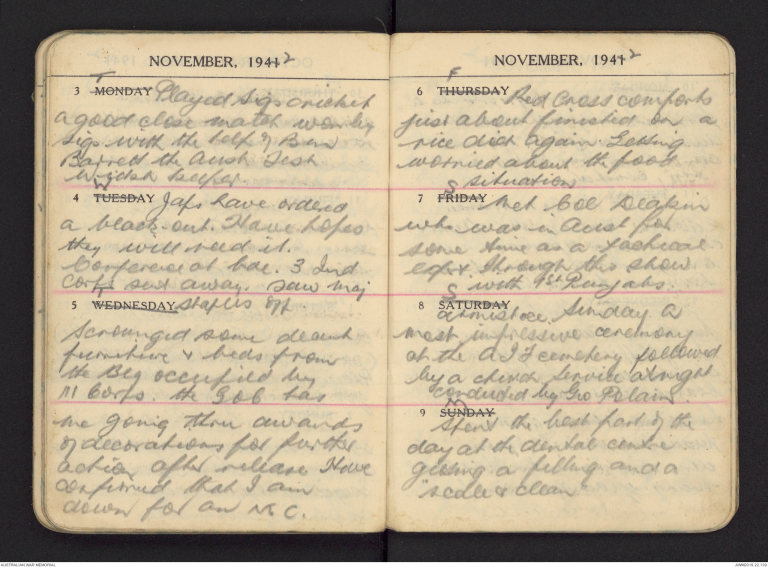 NOVEMBER, 1941 2
T
3 MONDAY Played Sigs cricket
a good close match won by
Sigs with the help of Ben
Barnett the Aust Test
Wicket keeper.
W
4 TUESDAY Japs have ordered
a black-out. Have hopes
they will need it.
Conference at bde. 3 Ind
Corps sent away. Saw Maj
T
5 WEDNESDAY Staples off.
Scrounged some decent
furniture & beds from
the Bldg occupied by
III Corps. the GOC has
me going thru awards
of decorations for further
action after release Have
confirmed that I am
down for an M C.
NOVEMBER, 1941 2
F
6 THURSDAY Red Cross comforts
just about finished on a
rice diet again. Getting
worried about the food
situation
S
7 FRIDAY Met Col Deakin
who was in Aust for
some time as a tactical
expert. Through this show
with Punjabs.
S
8 SATURDAY
Armistice Sunday a
most impressive ceremony
at the A I F cemetery followed
by a church service at night
conducted by Geo Polain
M
9 SUNDAY
Spent the best part of the
day at the dental centre
getting a filling and a
"scale & clean"
AUSTRALIAN WAR MEMORIAL